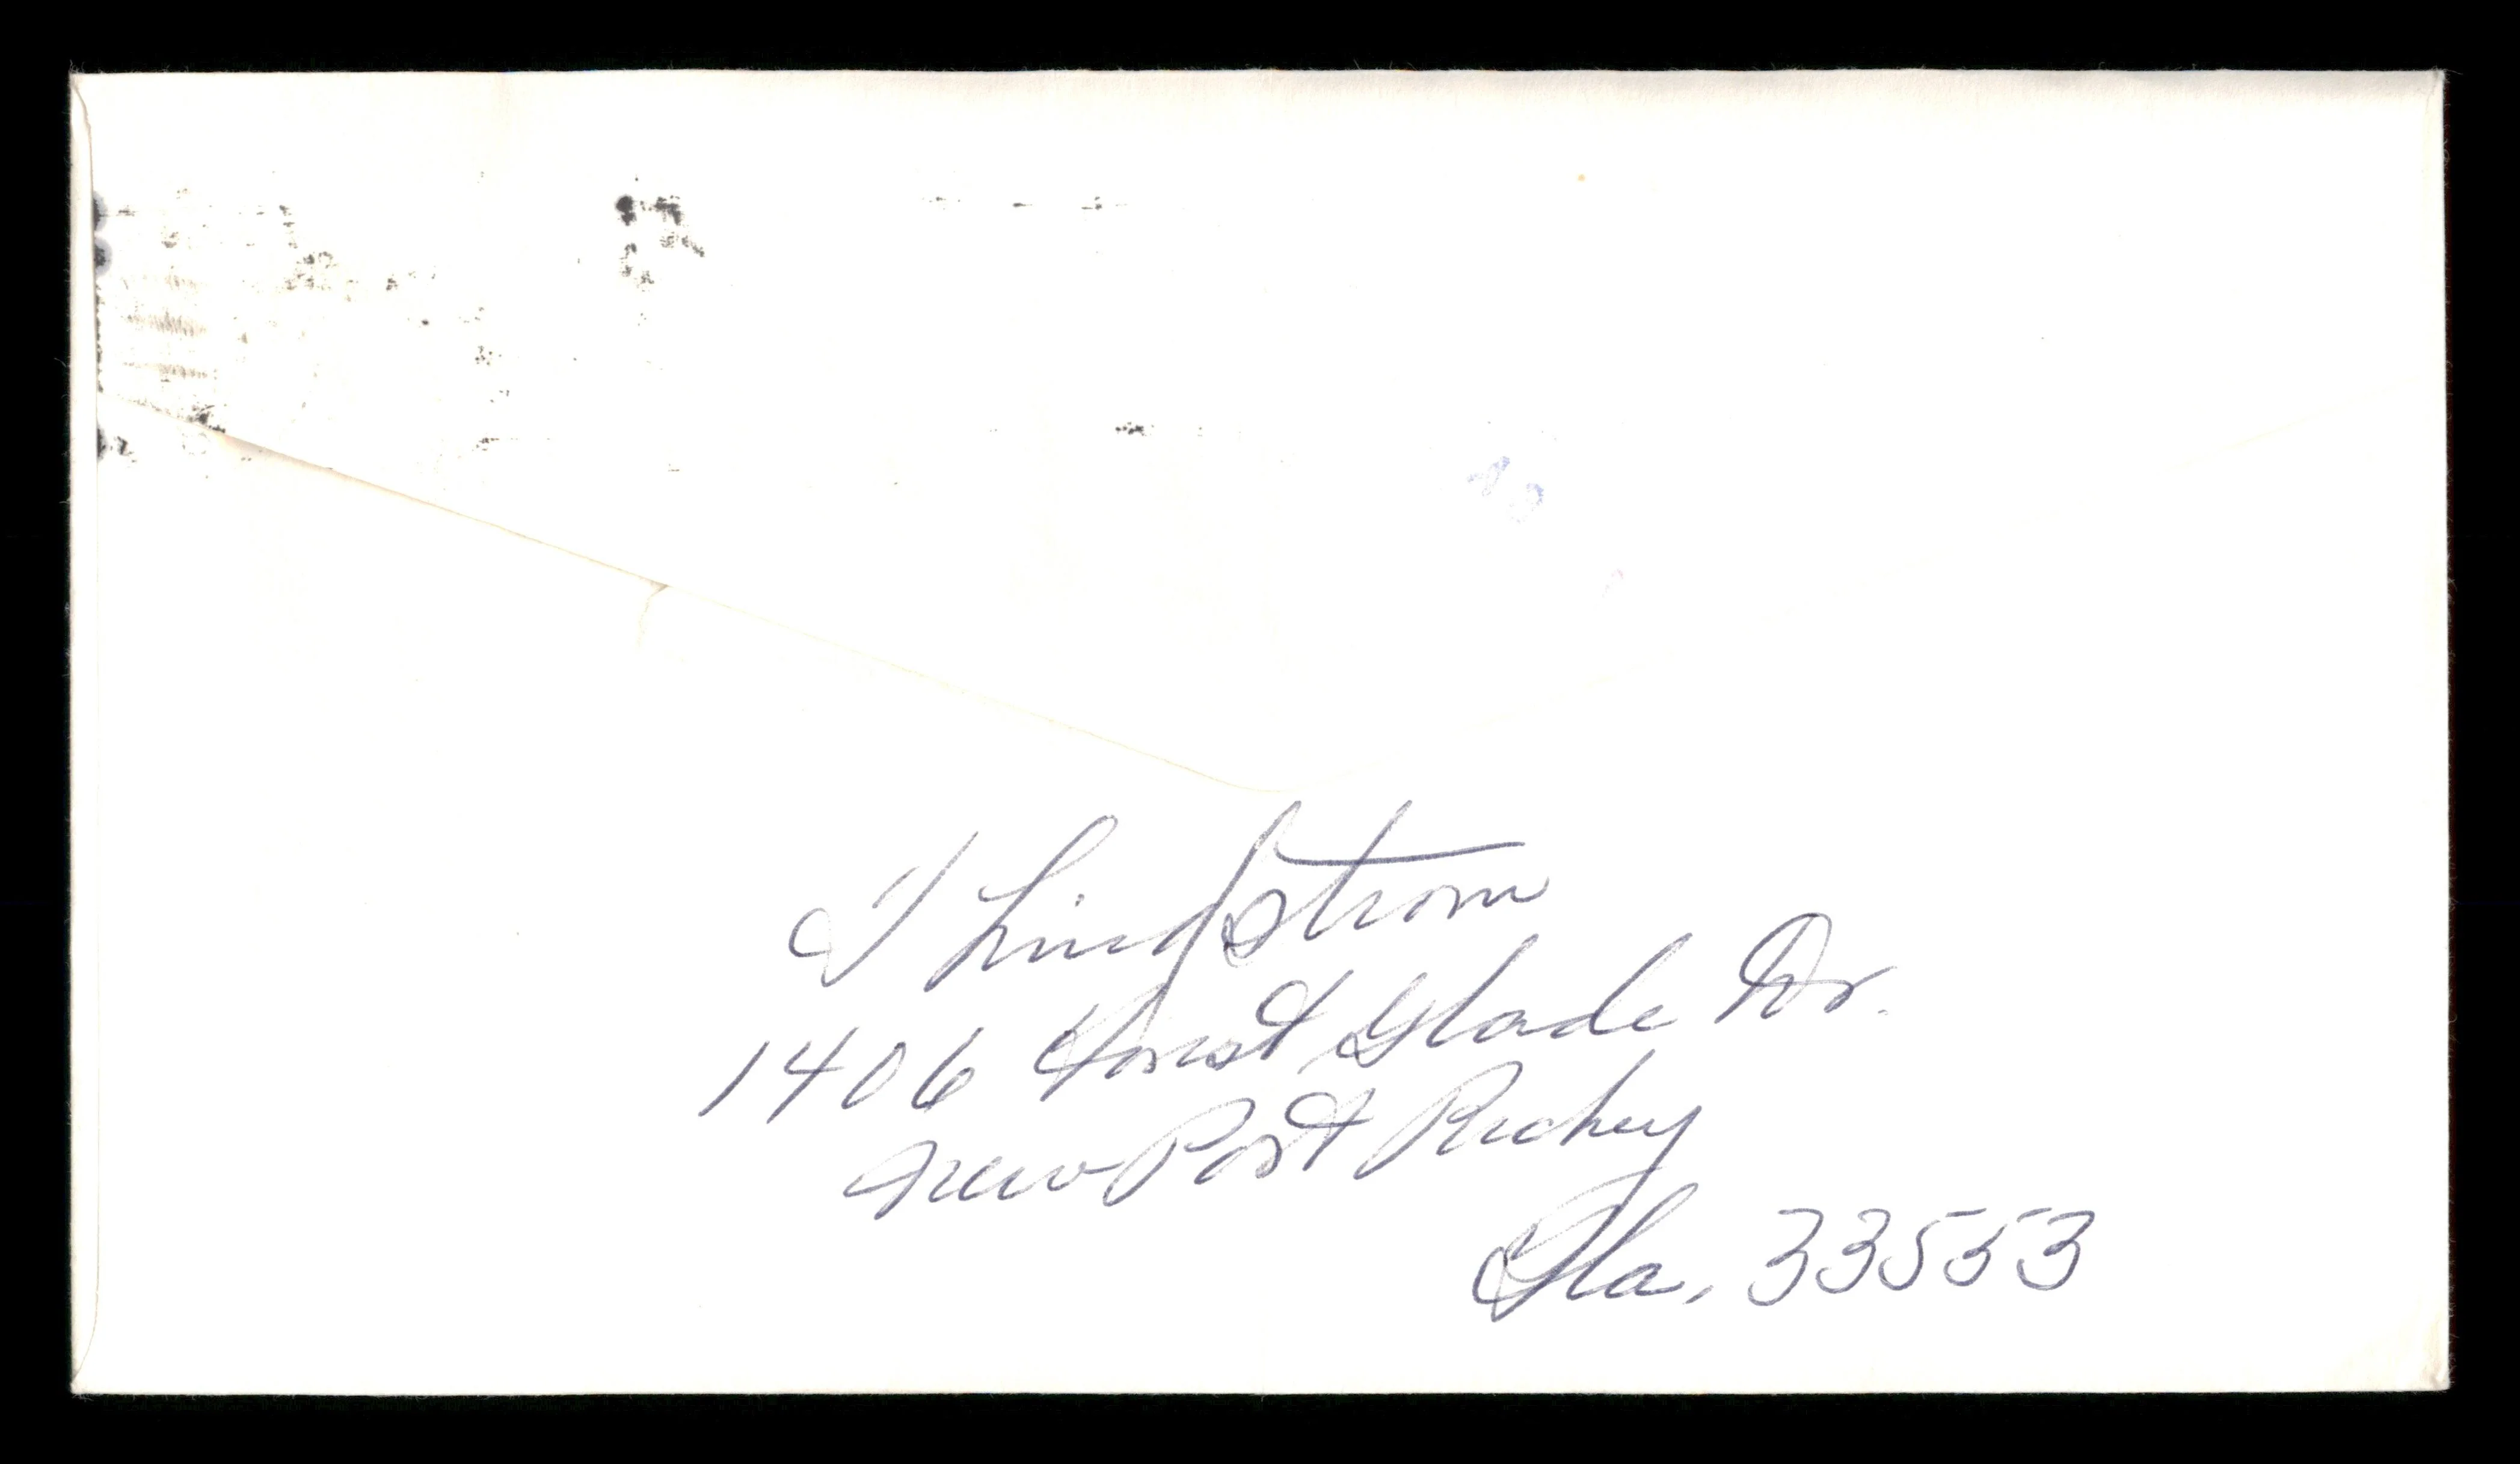 T Lindstrom
1406 Forest Glade Dr.
New Port Richey
Fla, 33553